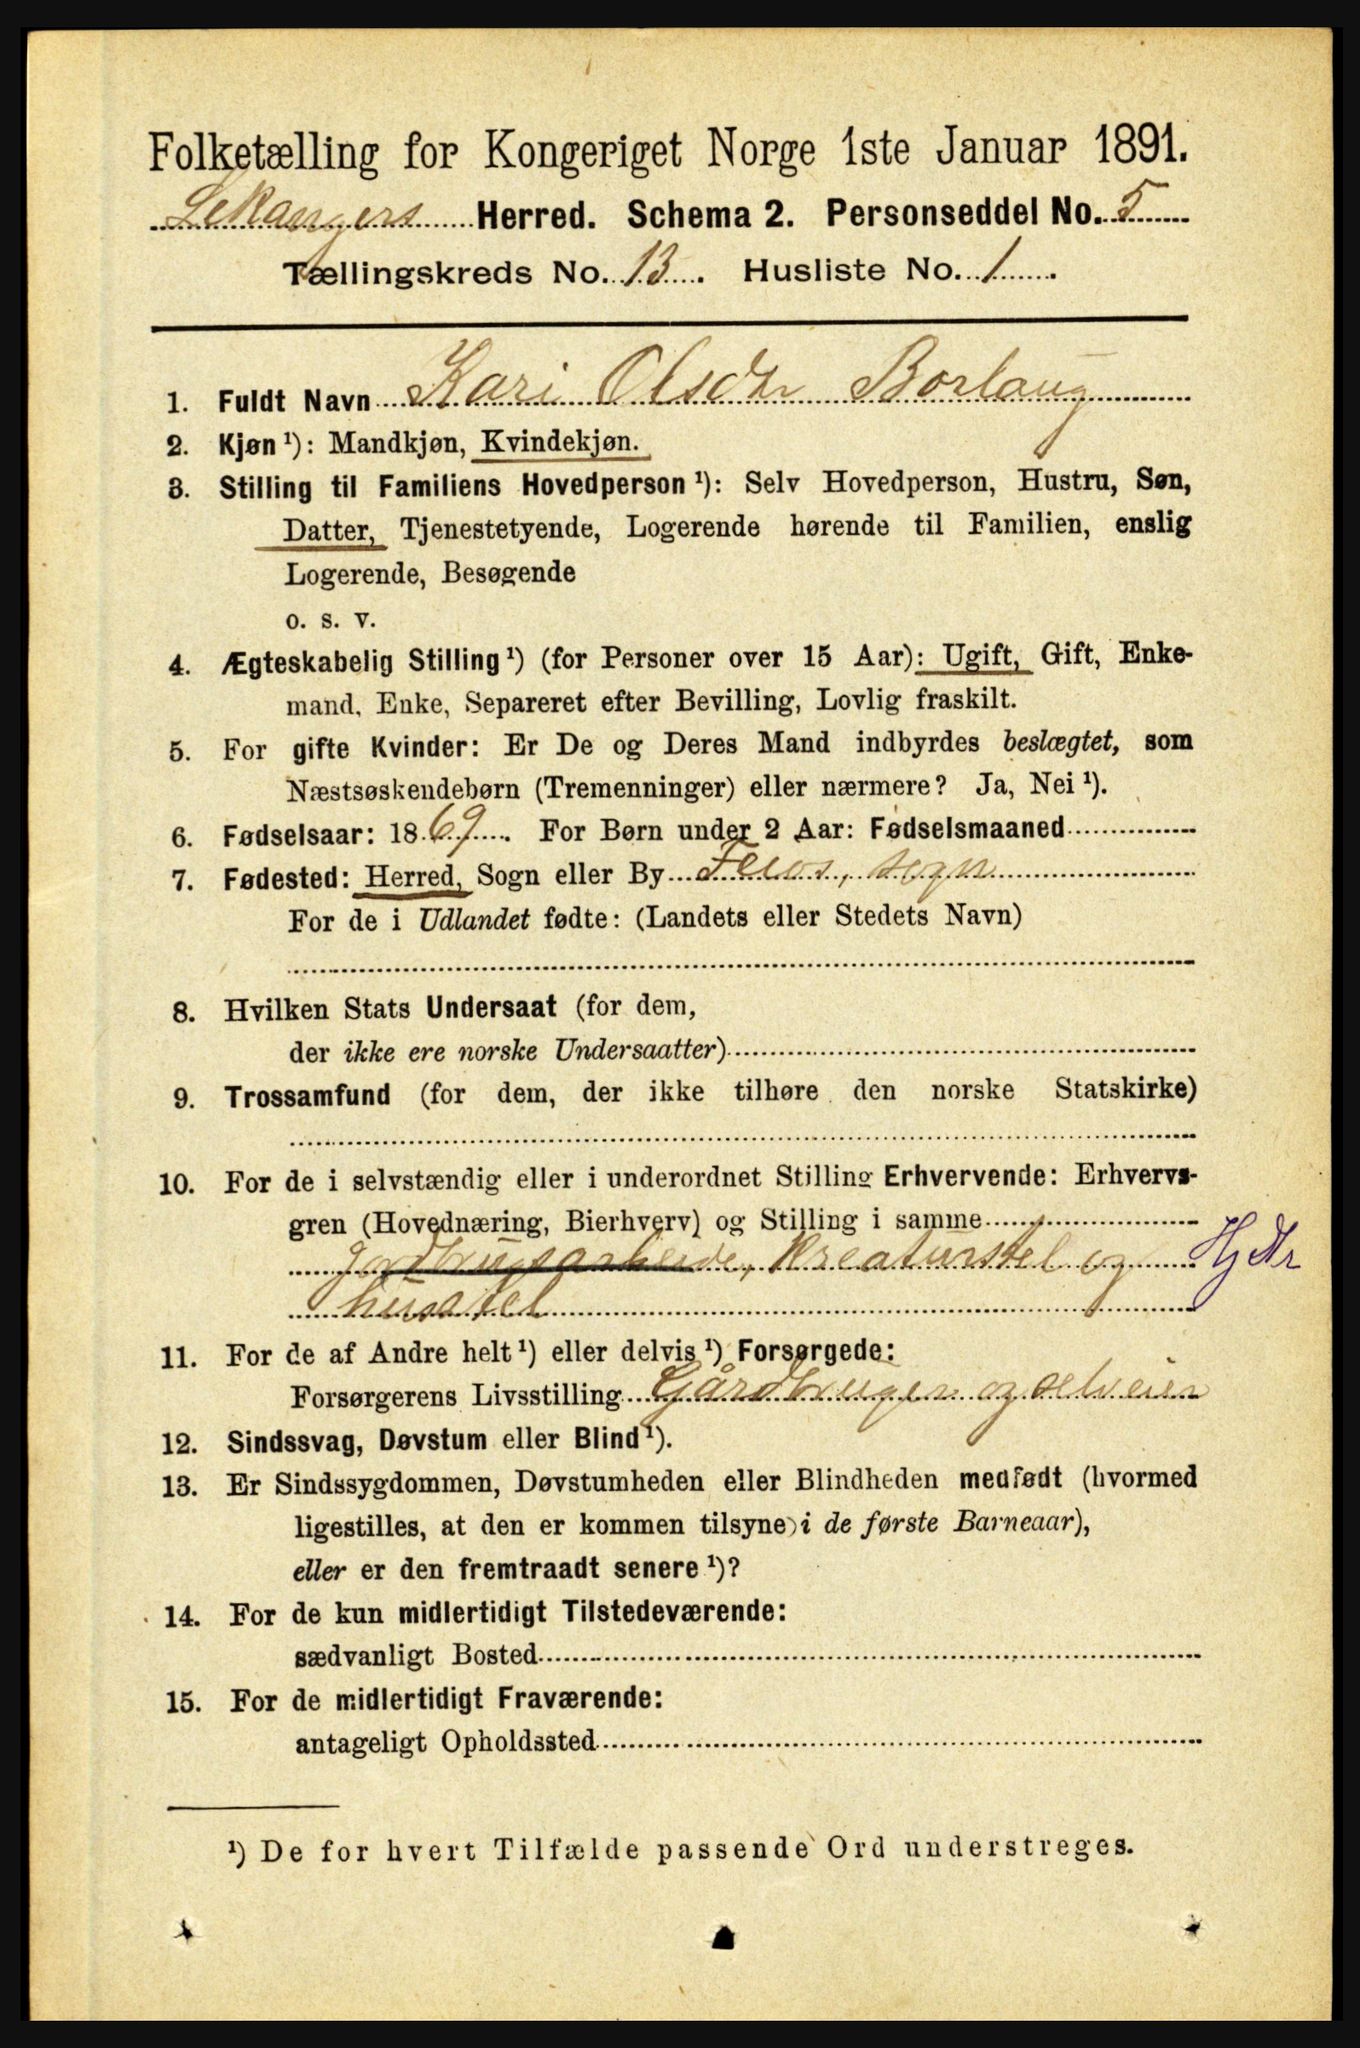 Folketælling for Kongeriget Norge 1ste Januar 1891.
Lekangers Herred. Schema 2. Personseddel No. 5
Tællingskreds No. 13. Husliste No. 1
1. Fuldt Navn Kari Olsdtr Borlaug
2. Kjøn ¹): Mandkjøn, Kvindekjøn.
3. Stilling til Familiens Hovedperson ¹): Selv Hovedperson, Hustru, Søn,
Datter, Tjenestetyende, Logerende hørende til Familien, enslig
Logerende, Besøgende
o. s. v.
4. Ægteskabelig Stilling ¹) (for Personer over 15 Aar): Ugift, Gift, Enke-
mand, Enke, Separeret efter Bevilling, Lovlig fraskilt.
5. For gifte Kvinder: Er De og Deres Mand indbyrdes beslægtet, som
Næstsøskendebørn (Tremenninger) eller nærmere? Ja, Nei ¹).
6. Fødselsaar: 1869. For Børn under 2 Aar: Fødselsmaaned
7. Fødested: Herred, Sogn eller By Feios, sogn
For de i Udlandet fødte: (Landets eller Stedets Navn)
8. Hvilken Stats Undersaat (for dem,
der ikke ere norske Undersaatter)
9. Trossamfund (for dem, der ikke tilhøre den norske Statskirke)
10. For de i selvstændig eller i underordnet Stilling Erhvervende: Erhvervs-
gren (Hovednæring, Bierhverv) og Stilling i samme
Jordbrugsarbeide, Kreaturstel og HjDtr
husstel
11. For de af Andre helt ¹) eller delvis ¹) Forsørgede:
Forsørgerens Livsstilling Gårdbruger og selveier
12. Sindssvag, Døvstum eller Blind ¹).
13. Er Sindssygdommen, Døvstumheden eller Blindheden medfødt (hvormed
ligestilles, at den er kommen tilsyne i de første Barneaar),
eller er den fremtraadt senere ¹)?
14. For de kun midlertidigt Tilstedeværende:
sædvanligt Bosted
15. For de midlertidigt Fraværende:
antageligt Opholdssted
¹) De for hvert Tilfælde passende Ord understreges.